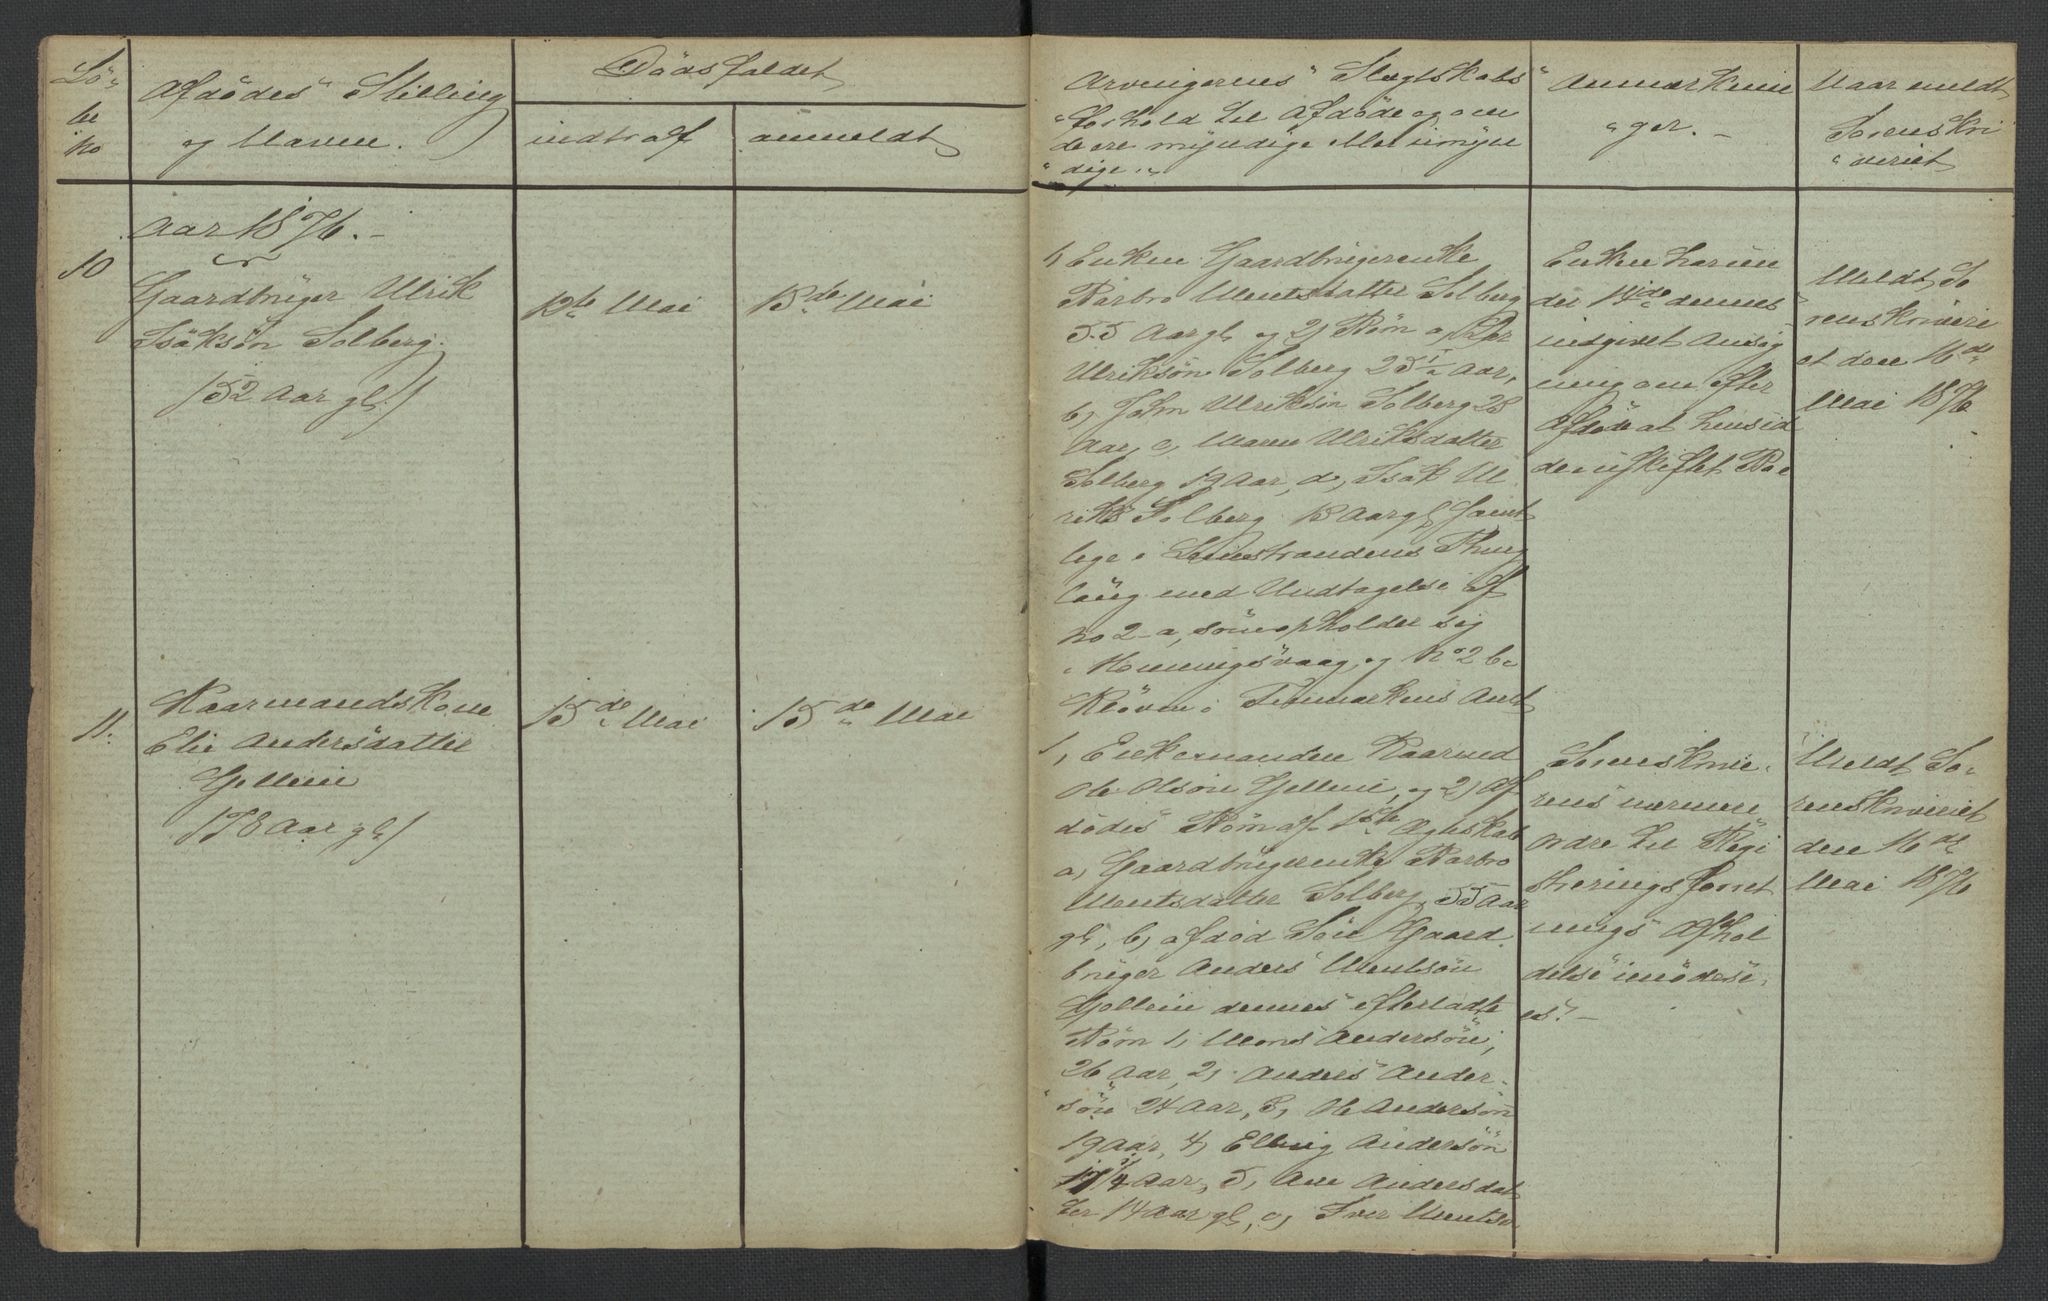 Lö-
be
no
Afdödes Stilling
og Navn.
Dödsfaldet
indtraf
anmeldt
Arvingernes Slegtskabs
forhold til Afdöde og om
de ere myndige eller umyn
dige.
Anmærknin
ger.
Naar meldt
Sorenskri
veriet
Aar 1876.
10
Gaardbruger Ulrik
Isaksön Solberg.
(52 Aar gl.)
12te Mai
13de Mai
1, Enken Gaardbrugerenke
Barbro Mentsdatter Solberg
55 Aar gl og 2, Börn a, Peer
Ulriksön Solberg 25 Aar,
b, John Ulriksön Solberg 28
Aar, c, Maren Ulriksdatter
Solberg 19 Aar, d, Isak Ul
riks Solberg 15 Aar gl Samt
lige i Leinstrandens Thing
laug med Undtagelse af
no 2 a, som opholder sig
i Honningsvaag, og No 2 b
i Finmarkens Amt
Enken har un
der 14de dennes
indgivet Ansög
ning om efter
Afdöde at hensid
de i uskiftet Bo
Meldt So
renskriveri
et den 16de
Mai 1876
11.
Kaarmandskone
Eli Andersdatter
Gjellein
(78 Aar gl)
15de Mai
15de Mai
1, Enkemanden Kaarmd
Ole Olsön Gjellein, og 2, Af
dödes Börn af 1ste Ægteskab
a, Gaardbrugerenke Barbro
Mentsdatter Solberg, 55 Aar
gl, b, afdöd Sön Gaard
bruger Anders Mentsön
Gjellein dennes efterladte
Börn 1, Mons Andersön,
26 Aar, 2, Anders Ander-
sön 24 Aar, 3, Ole Andersön
19 Aar, 4, Elling Andersön
17 1/4 Aar, 5, Ane Andersdat
ter 14 Aar gl, c, Iver Mentsö
Sorenskrive-
rens nærmere
Ordre til Regi
streringsforret
nings Afhol
delse imödese-
es.
Meldt So-
renskriveriet
den 16de
Mai 1876